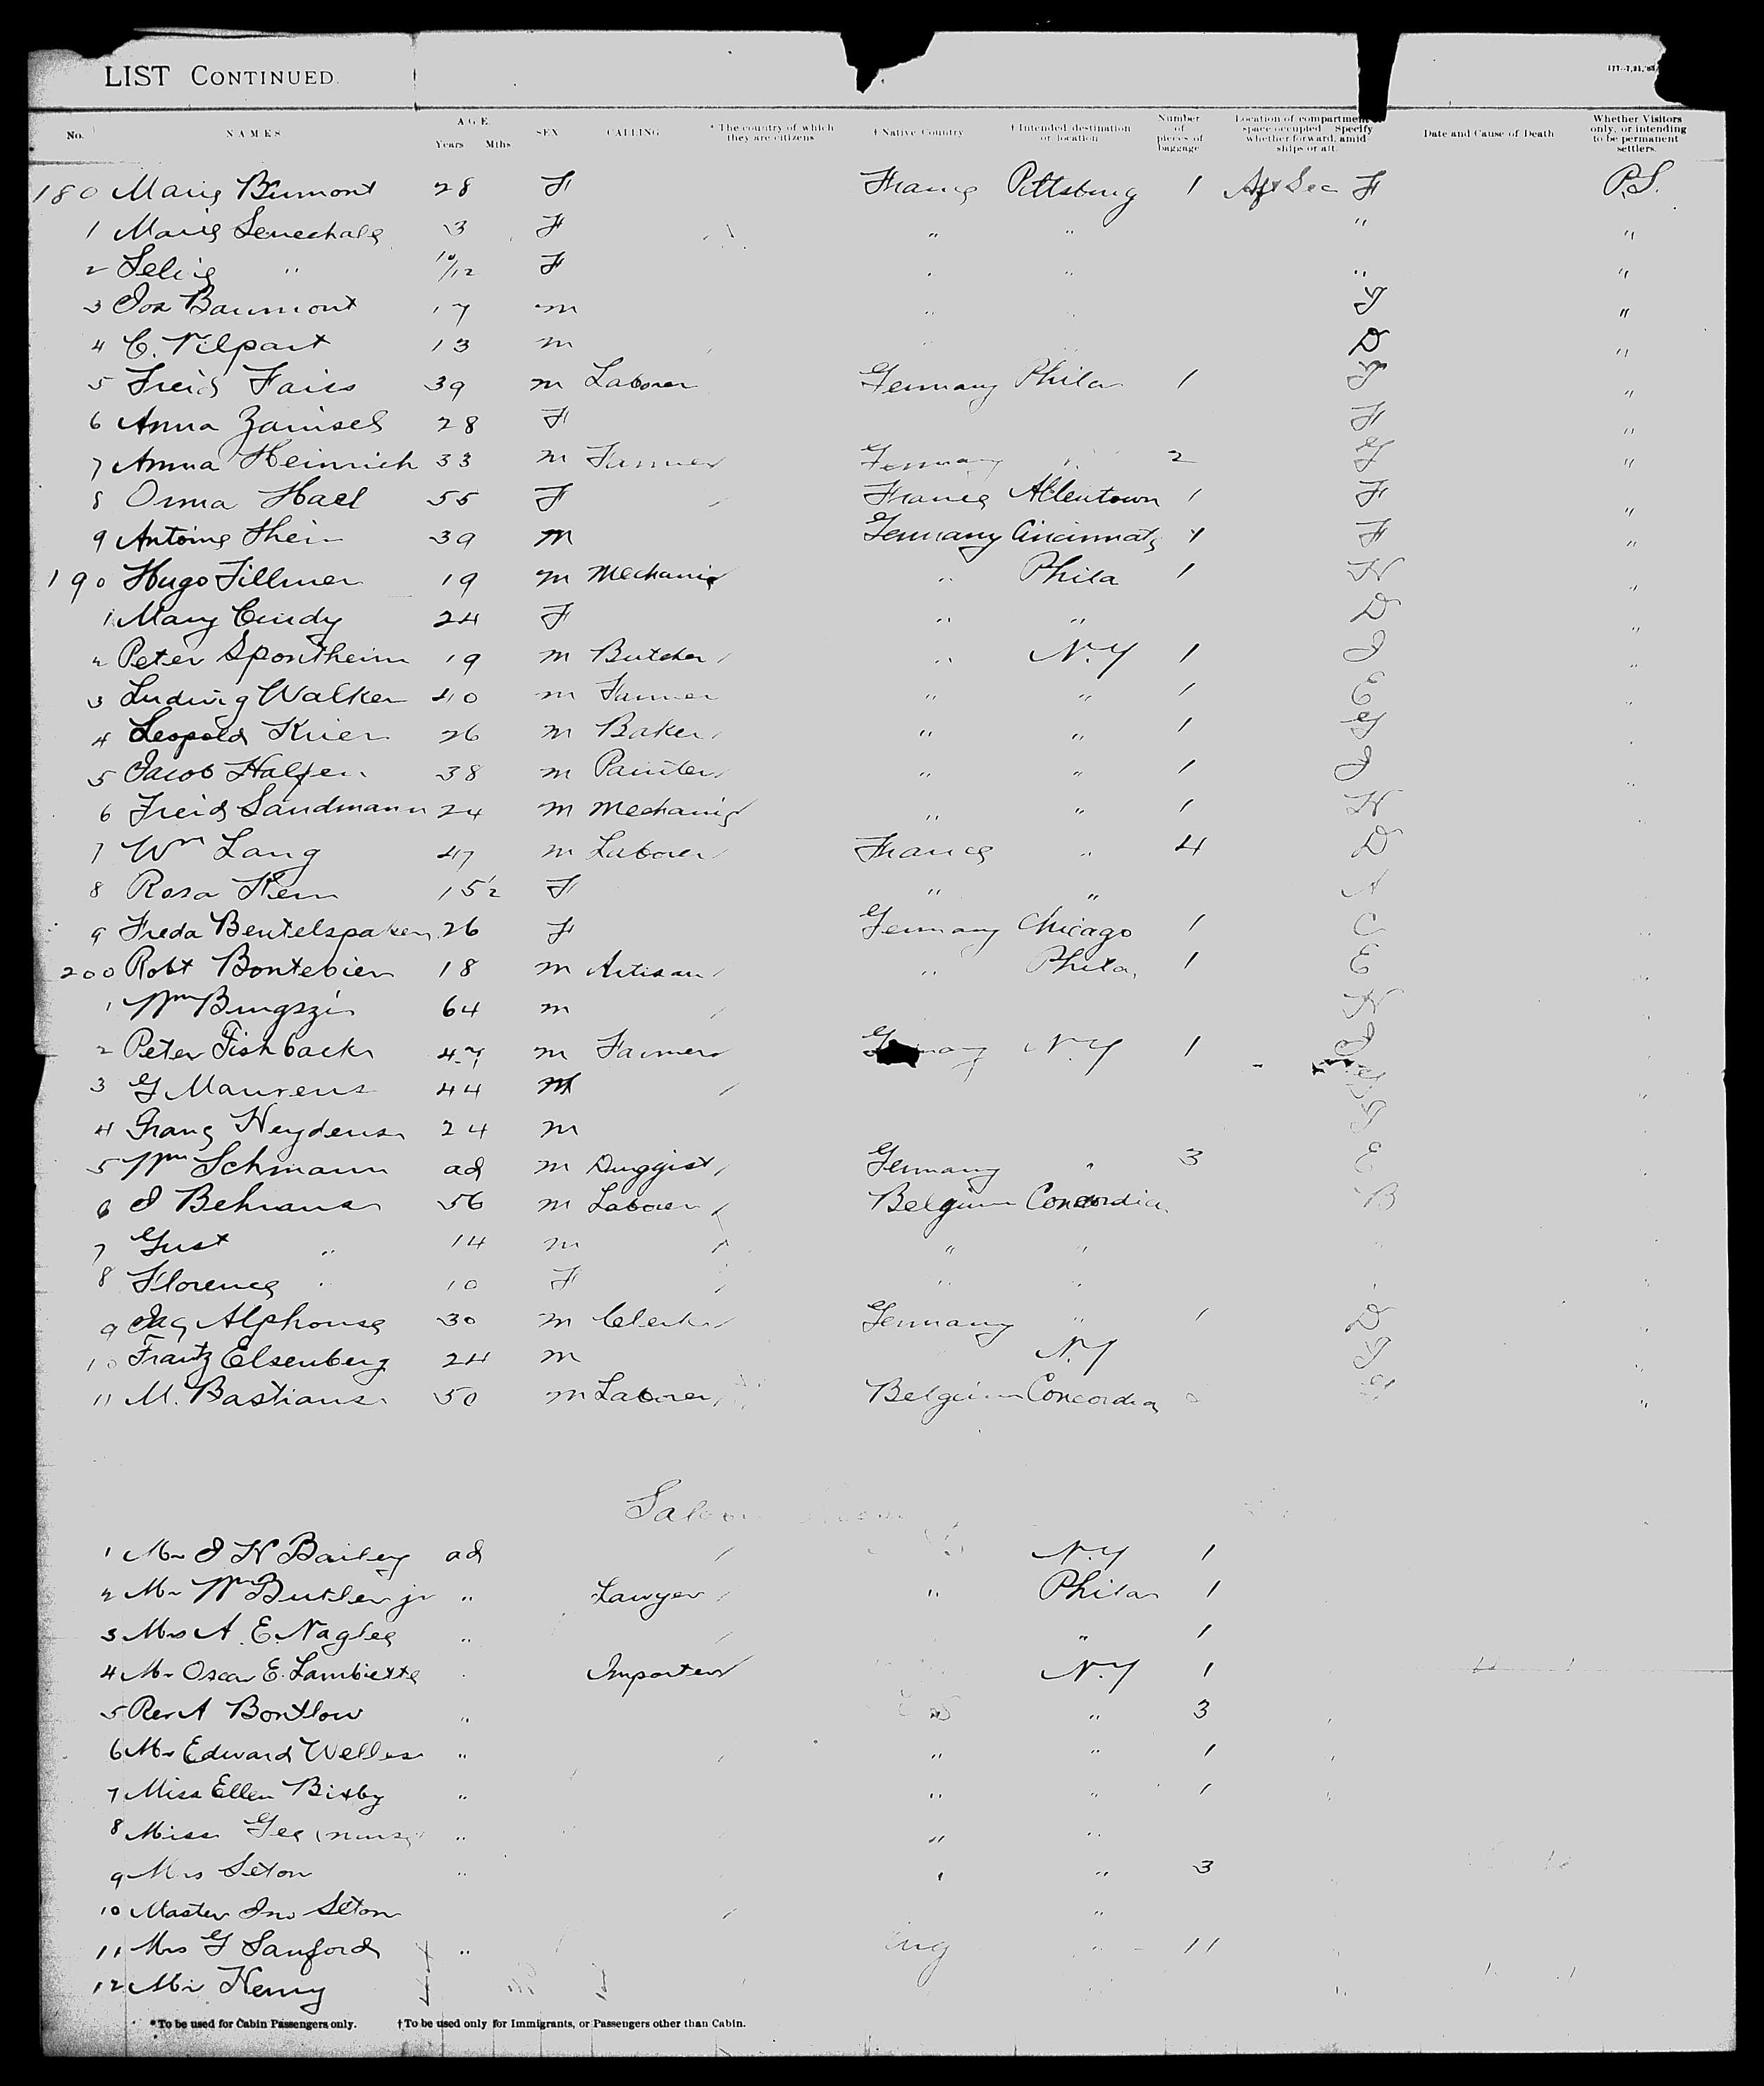 LIST CONTINUED.
No. NAMES AGE Years Mths. SEX CALLING *The country of which they are citizens †Native Country †Intended destination or location Number of pieces of baggage Location of compartment or space occupied Specify whether forward, amidships or aft. Date and Cause of Death Whether Visitors only, or intending to be permanent settlers.
180 Marie Bumont 28 F France Pittsburg 1 Aft Sec F P.S.
1 Marie Senechale 3 F " " " "
2 Selie " 10/12 F " " " "
3 Jos Baumont 17 m " G "
4 C. Vilpart 13 m D "
5 Freid Faiss 39 m Laborer Germany Phila 1 G "
6 Anna Zamsel 28 F F "
7 Anna Heinrich 33 m Farmer Germany " 2 G "
8 Orma Hael 55 F France Allentown 1 F "
9 Antoine Thein 39 m Germany Cincinnati 1 F "
190 Hugo Fillmer 19 m Mechanic " Phila 1 H "
1 Mary Cundy 24 F " " D "
2 Peter Spontheim 19 m Butcher " N.Y 1 J "
3 Ludwig Walker 40 m Farmer " " 1 E "
4 Leopold Krier 26 m Baker " " 1 G
5 Jacob Halfen 38 m Painter " " 1 J "
6 Freid Sandmann 24 m Mechanic " " 1 H
7 Wm Lang 47 m Laborer France " 4 D
8 Rosa Kern 15 1/2 F " " A
9 Freda Beutelspaker 26 F Germany Chicago 1 C "
200 Robt Bontebier 18 m Artisan " Phila. 1 E "
1 Wm 64 m H
2 Peter Fishback 47 m Farmer Germany N.Y 1 J
3 G Maurens 44 m G "
4 Franz Heydens 24 m G
5 Wm Schmann ad m Druggist Germany " 3 E
6 J Behrans 56 m Laborer Belgium Concordia B
7 Gust " 14 m " "
8 Florence " 10 F " "
9 Alphonse 30 m Clerk Germany " 1 D
10 Frantz Elsenberg 24 m N.Y G "
11 M. Bastians 50 m Laborer Belgium Concordia G "
Saloon
1 Mr J H Bailey ad N.Y 1
2 Mr Wm Butler jr " Lawyer " Phila 1
3 Mrs A. E. Naglee " " 1
4 Mr Oscar E. Lambiette Importer N.Y 1
5 Rev A Bortlow " " 3
6 Mr Edward Welles " " " 1
7 Miss Ellen Bixby " " " 1
8 Miss Gee (nurse) " " "
9 Mrs Seton " " 3
10 Master Jno Seton "
11 Mrs G Sanford " Eng " 11
12 Mr Henry
*To be used for Cabin Passengers only. †To be used only for Immigrants, or Passengers other than Cabin.